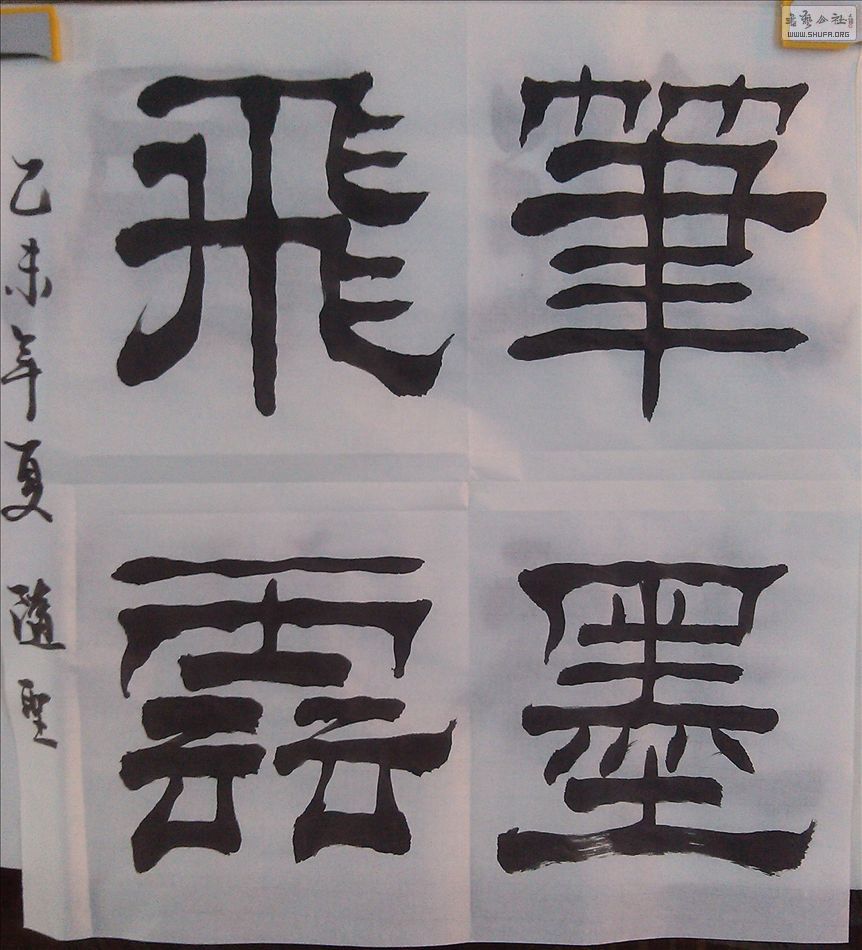 筆墨
飛
乙未年夏 隨聖
书艺公社
WWW.SHUFA.ORG